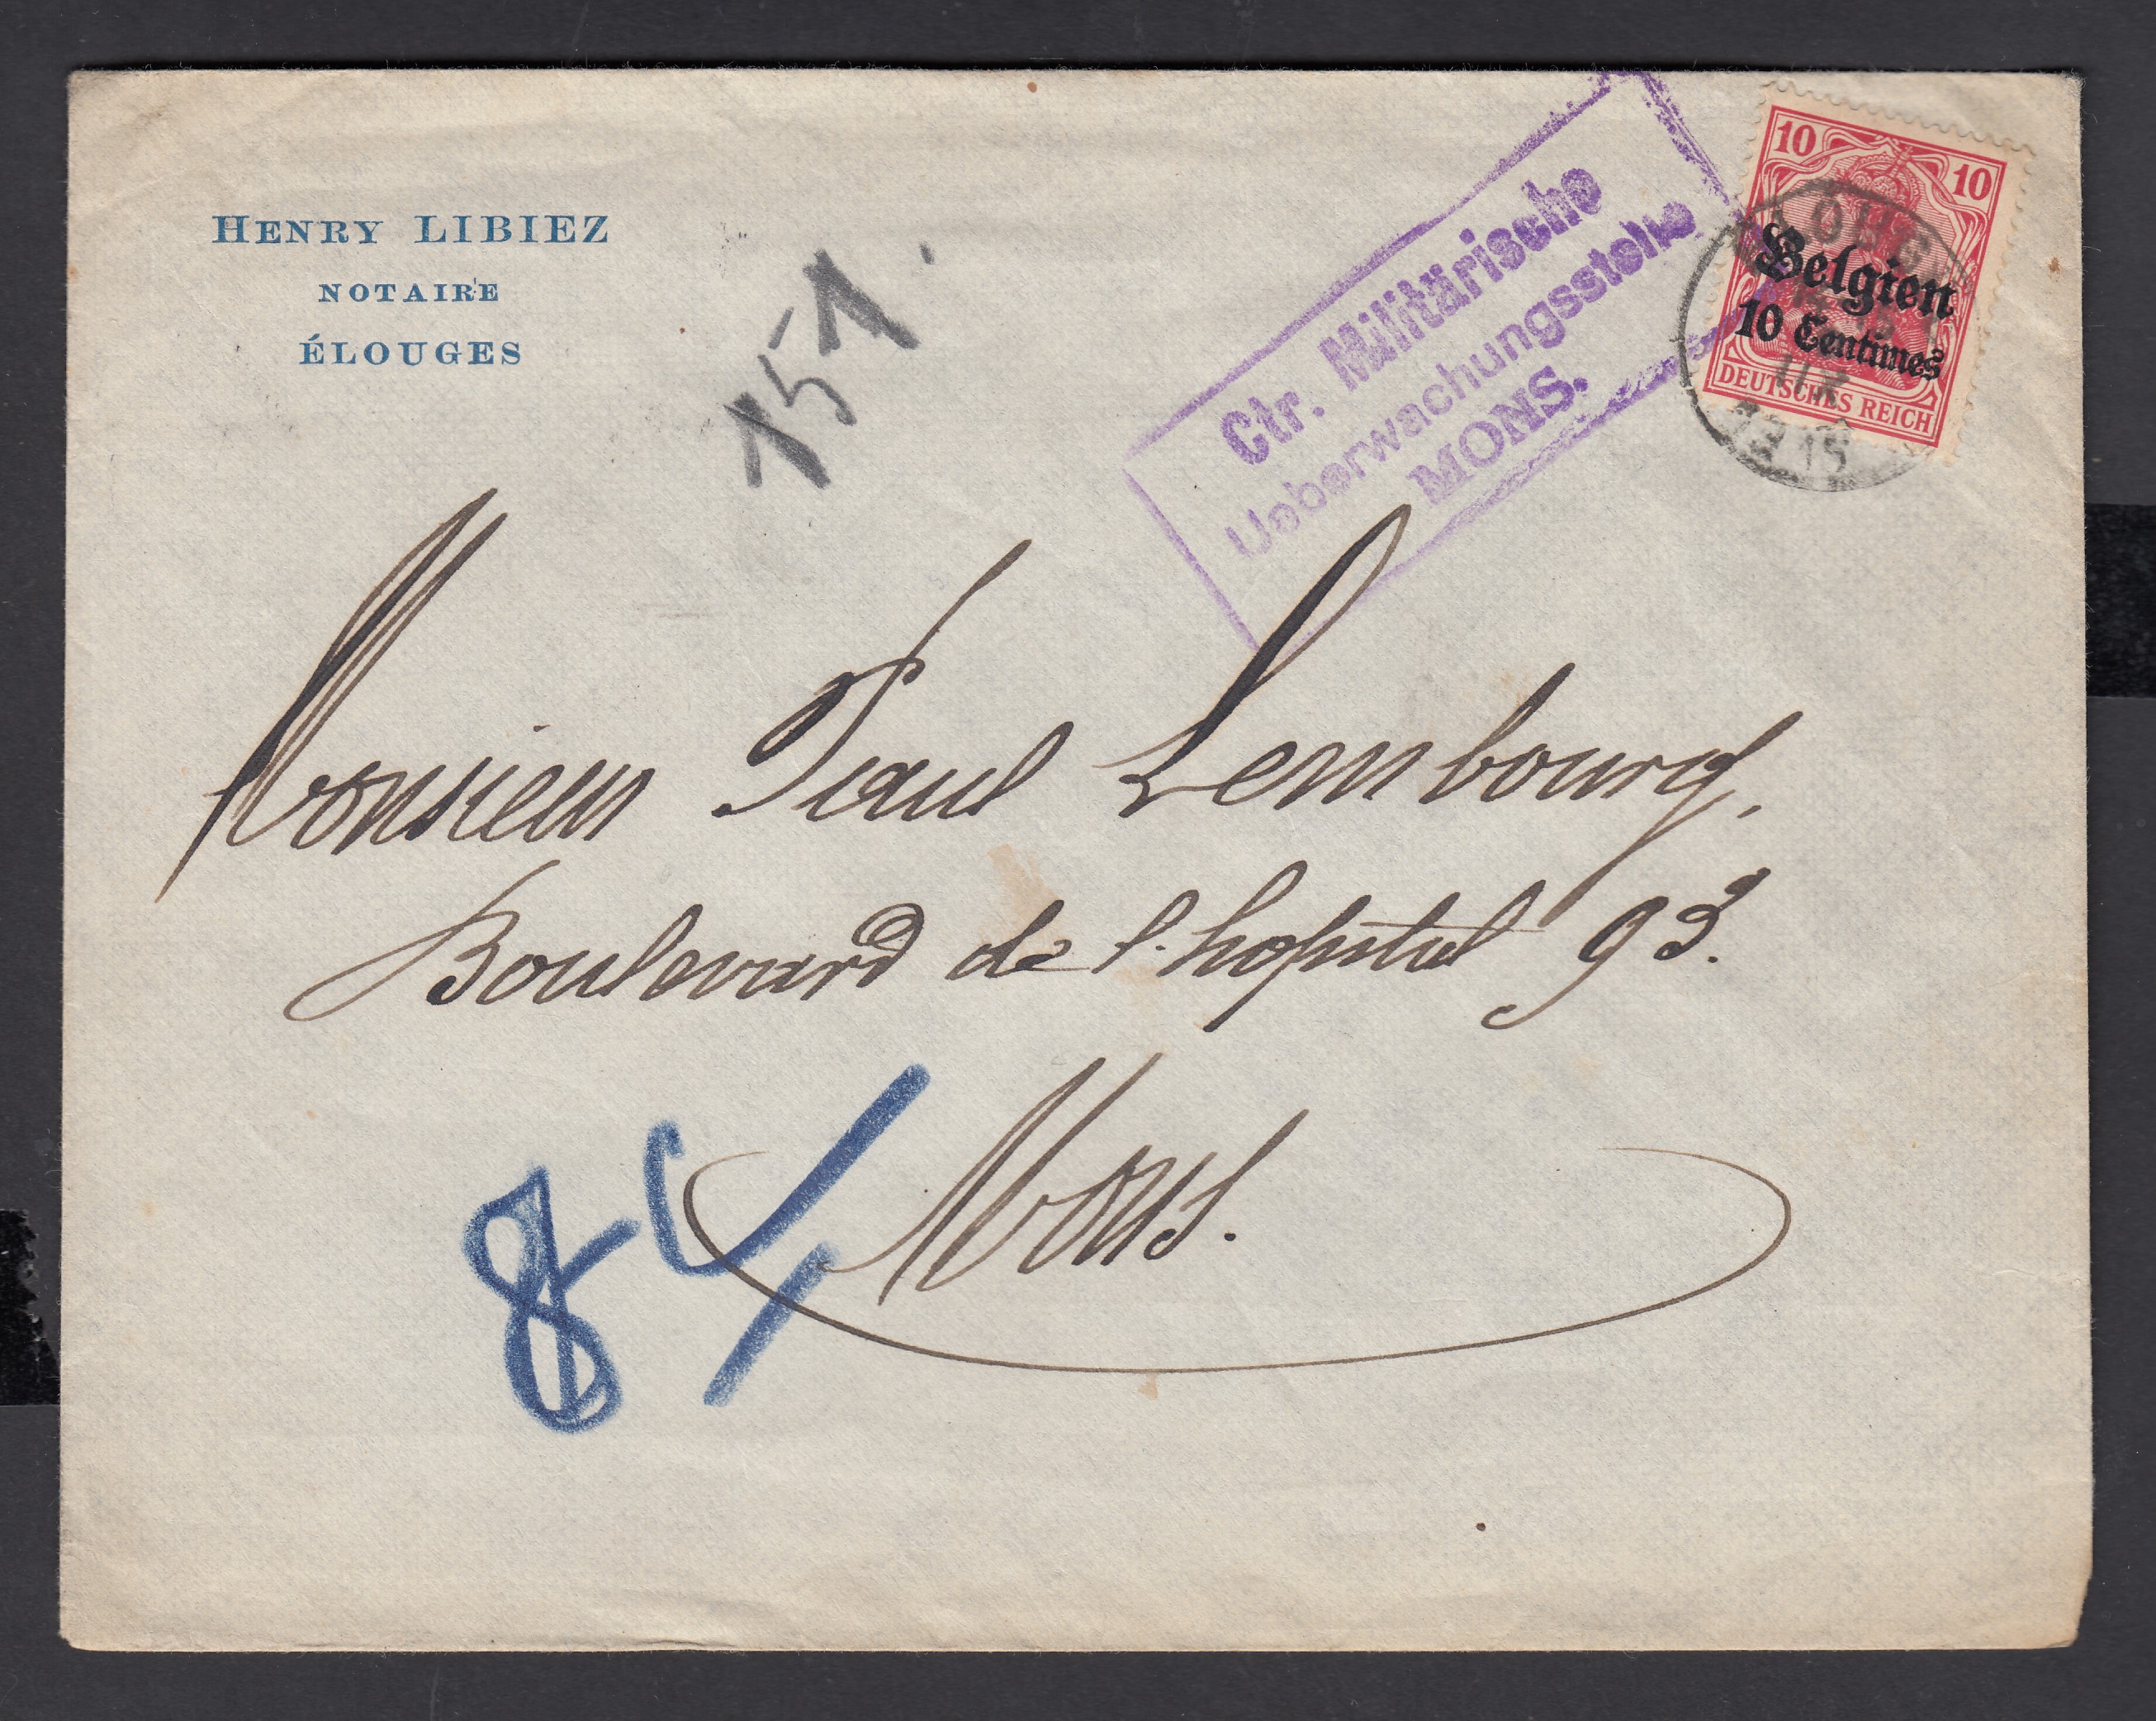 HENRY LIBIEZ
NOTAIRE
ÉLOUGES
151.
Ctr. Militärische
Ueberwachungsstelle
MONS.
10 10
Belgien
10 Centimes
DEUTSCHES REICH
1915
Monsieur Paul Lembourg,
Boulevard de l'hopital 93.
Mons.